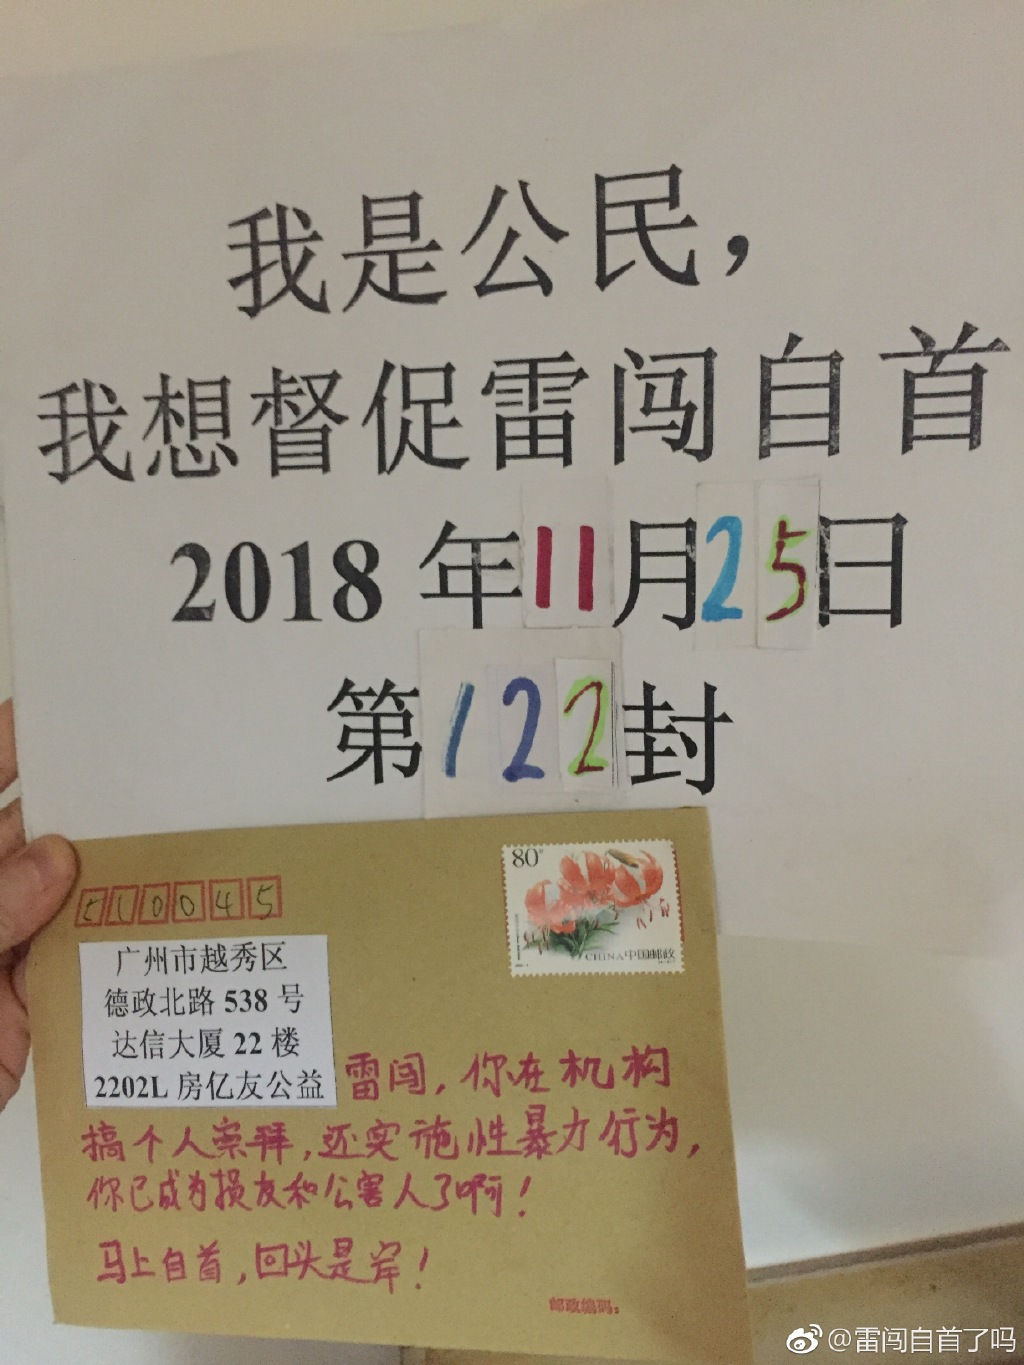 我是公民，
我想督促雷闯自首
2018 年11月25日
第122封
80分
CHINA 中国邮政
510045
广州市越秀区
德政北路 538 号
达信大厦 22 楼
2202L 房亿友公益
雷闯，你在机构
搞个人崇拜，还实施性暴力行为，
你已成为损友和公害人了啊！
马上自首，回头是岸！
邮政编码：
@雷闯自首了吗